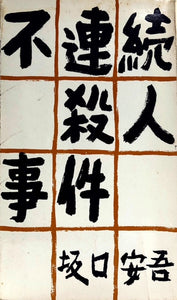 不連続
殺人
事件
坂口安吾